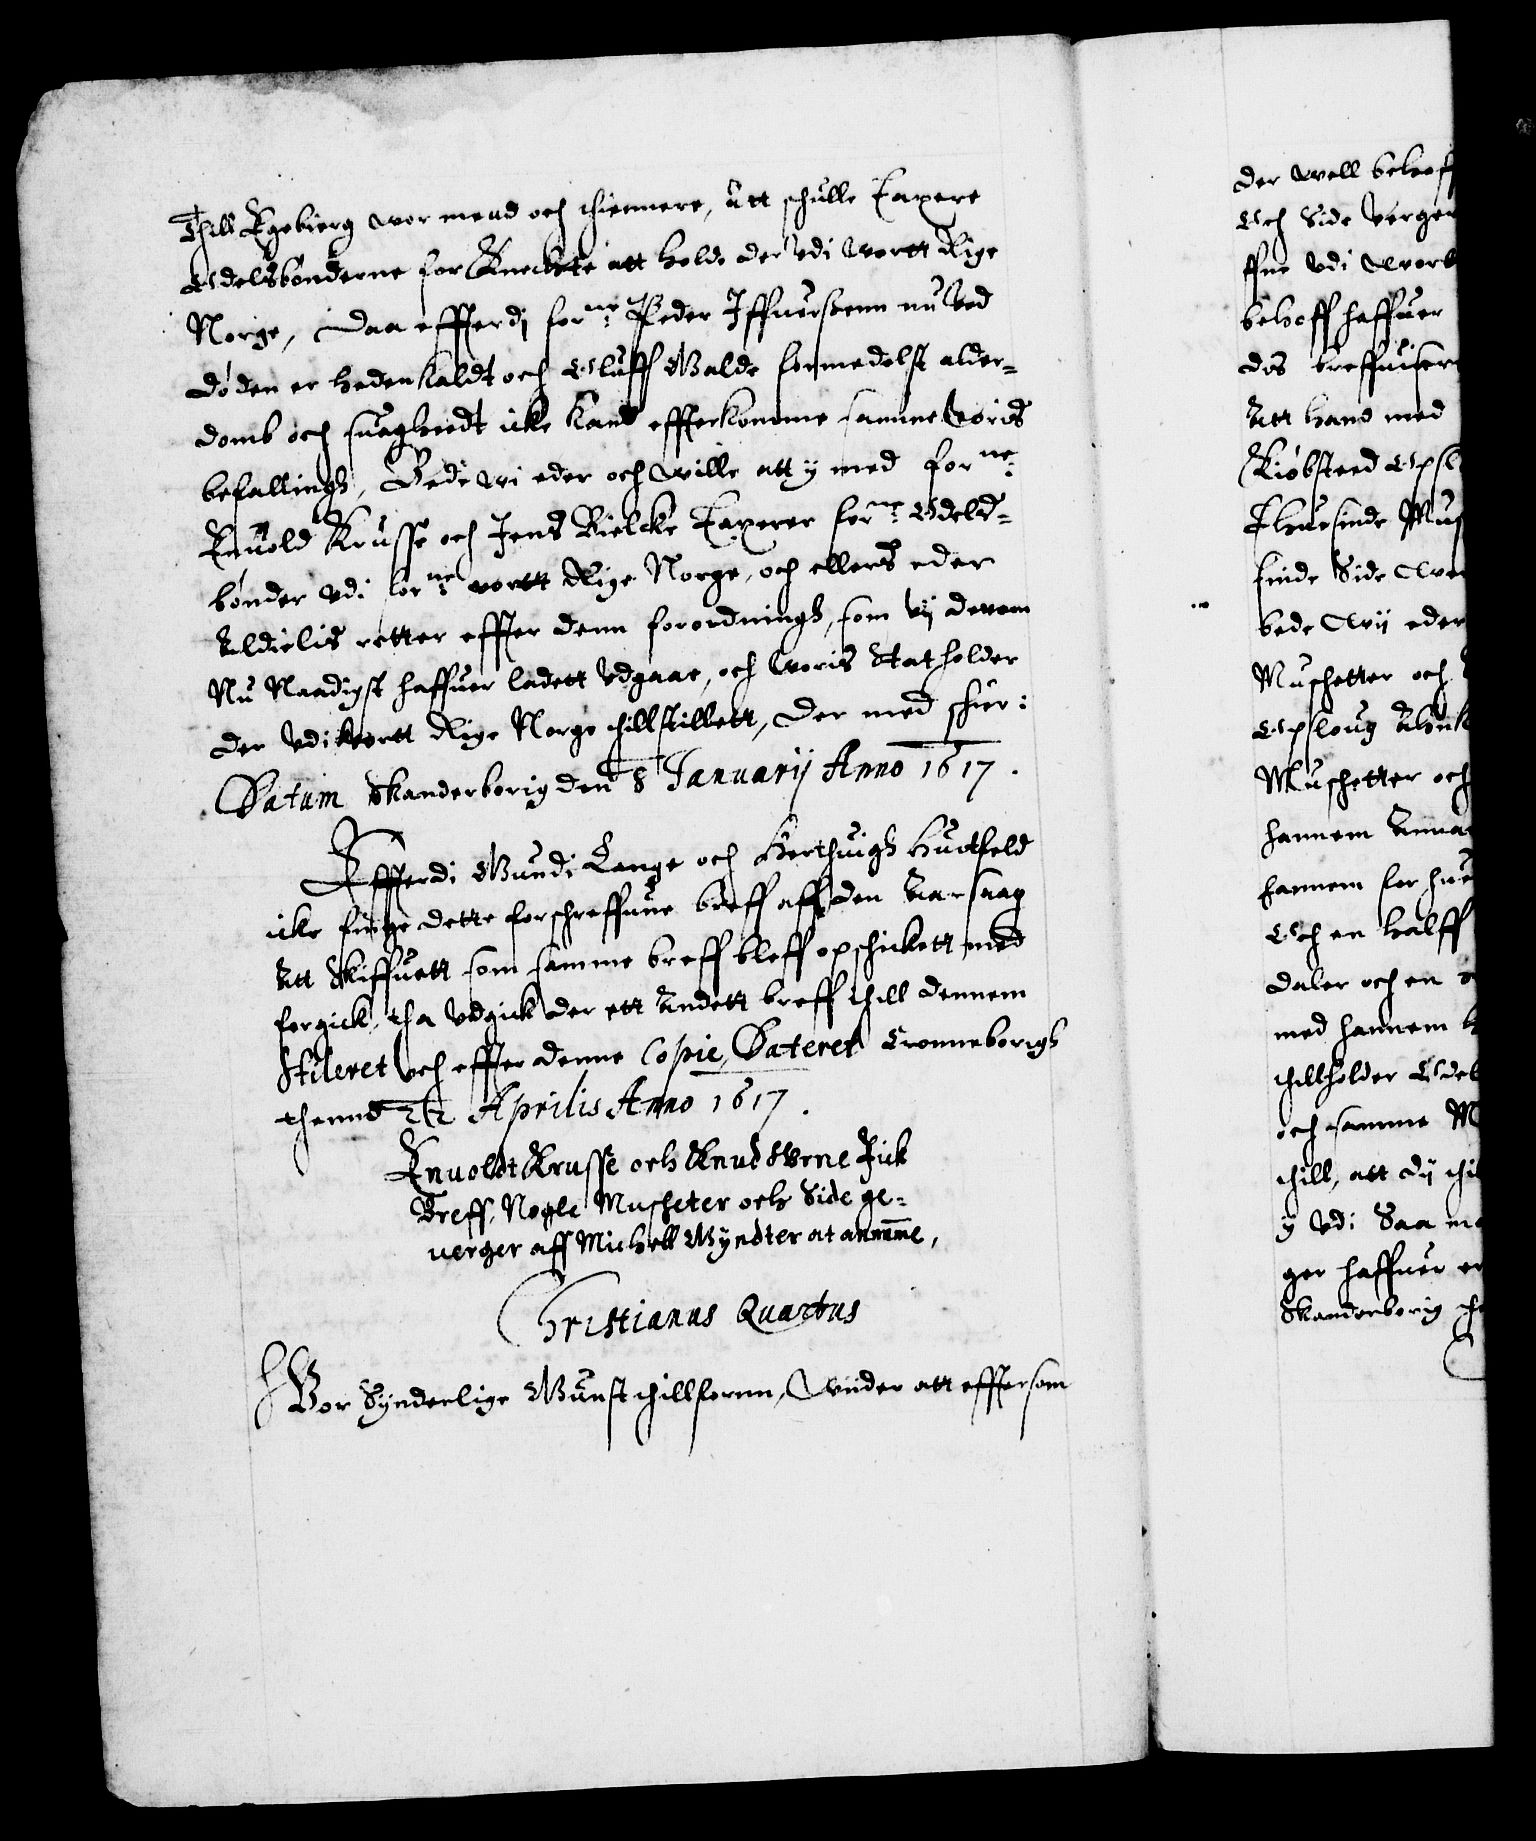 Thill Egebierg vor mend och thiennere, Att schulle Taxere
Odelsbønderne for Kneckte att holde der Vdi vortt Rige
Norge, Daa effterdj forne: Peder Jffuerssenn nu Ved
døden er hedenkaldt och Oluff Galde formedelst alder-
domb och suagheedt icke Kand effterkomme samme Voris
befallingh, Bede wi eder och wille att y med forne:
Enuold Krusse och Jens Bielcke Taxerer forne: Odels-
bønder Vdi forne: vortt Rige Norge, och ellers eder
Aldielis retter effter denn forordningh, som Vij derom
Nu Naadigst haffuer ladett Vdgaae, och Voris Statholder
der Vdi Vortt Rige Norge thillstillett, Der med scher:
Datum Skanderborig den 8 Januarij Anno 1617.
Effterdi Gundi Lange och Herthuigh Huidtfeld
icke finge dette forschreffune breff aff den Aarsaag
Att Skiffuett som samme breff bleff opschickett med
forgick, tha Vdgick der ett Andett breff thill dennem
Stileret och effter denne Copie, Dateret Cronneborigh
thennd 22 Aprilis Anno 1617.
Enuoldt Krusse och Knud Vrne Fick
Breff, Nogle Muscheter och Side ge-
uerger aff Michell Wyndter at anamme,
Christianus Quartus
Vor Synderlige Gunst thillfornn, Viider att efftersom
der well behoff
Och Side Verger
ffne Vdi Vort
behoff haffuer
dis breffuiser
Att hand med
Kiøbsteed Opsl
Thuesinde Mus
sinde Side Ver
bede Wij eder
Muschetter och
Opsloug
Muschetter och
hannem Anna
hannem for hue
Och en halff
daler och en
med hannem
thillholder Odel
och samme M
thill, att dij thil
ij Vdi Saa ma
ger haffuer er
Skanderborig th